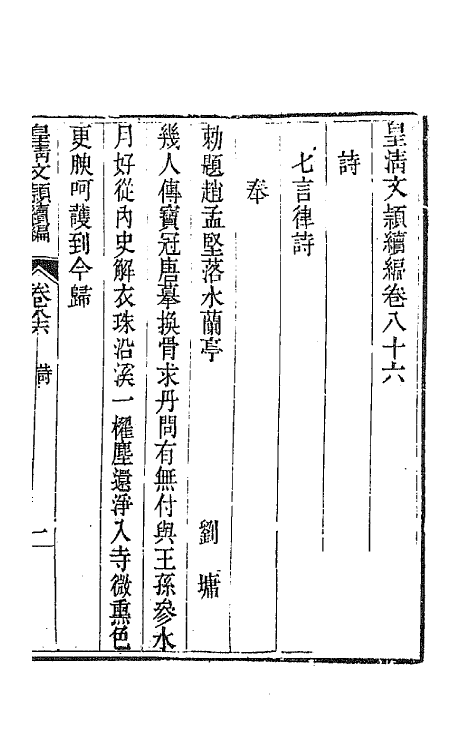 皇淸文頴續編卷八十六
詩
七言律詩
奉
勅題趙孟堅落水蘭亭　劉墉
幾人傳寶冠唐摹換骨求丹問有無付與王孫參水
月好從內史解衣珠沿溪一櫂塵還淨入寺微熏色
更腴呵護到今歸
皇淸文頴續編　卷八十六　詩　一